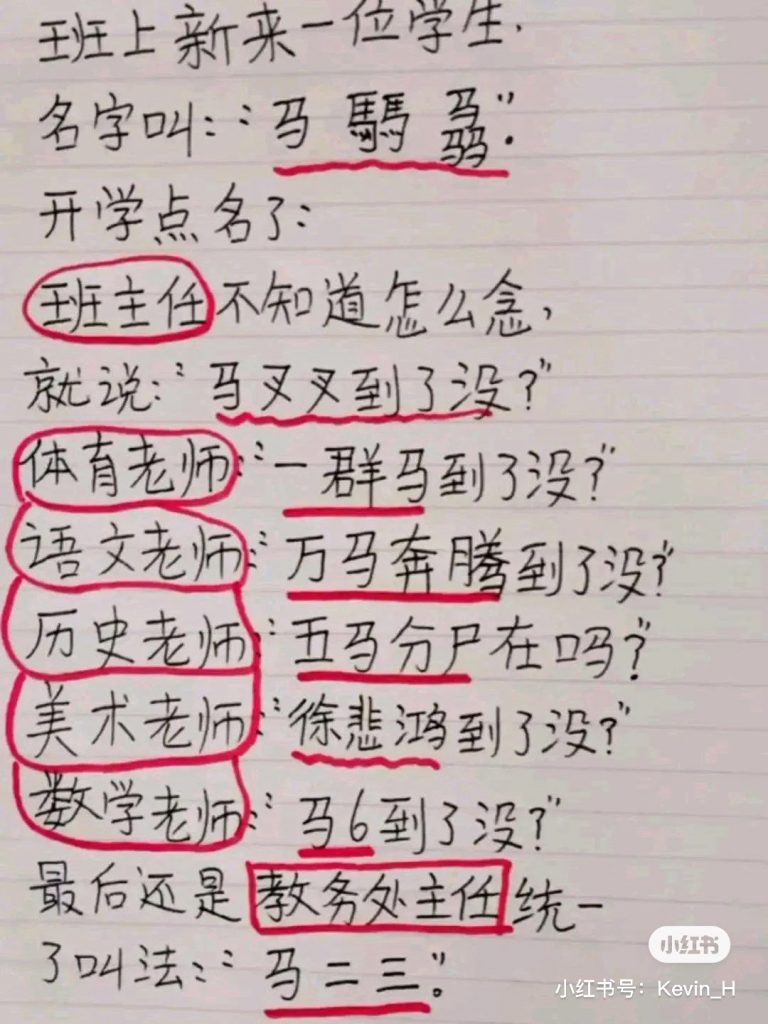 班上新来一位学生.
名字叫:“马 騳 骉”.
开学点名了:
班主任不知道怎么念,
就说:“马叉叉到了没?”
体育老师:“一群马到了没?”
语文老师:“万马奔腾到了没?”
历史老师:“五马分尸在吗?”
美术老师:“徐悲鸿到了没?”
数学老师:“马6到了没?”
最后还是教务处主任统一
了叫法:“马二三”。
小红书
小红书号：Kevin_H